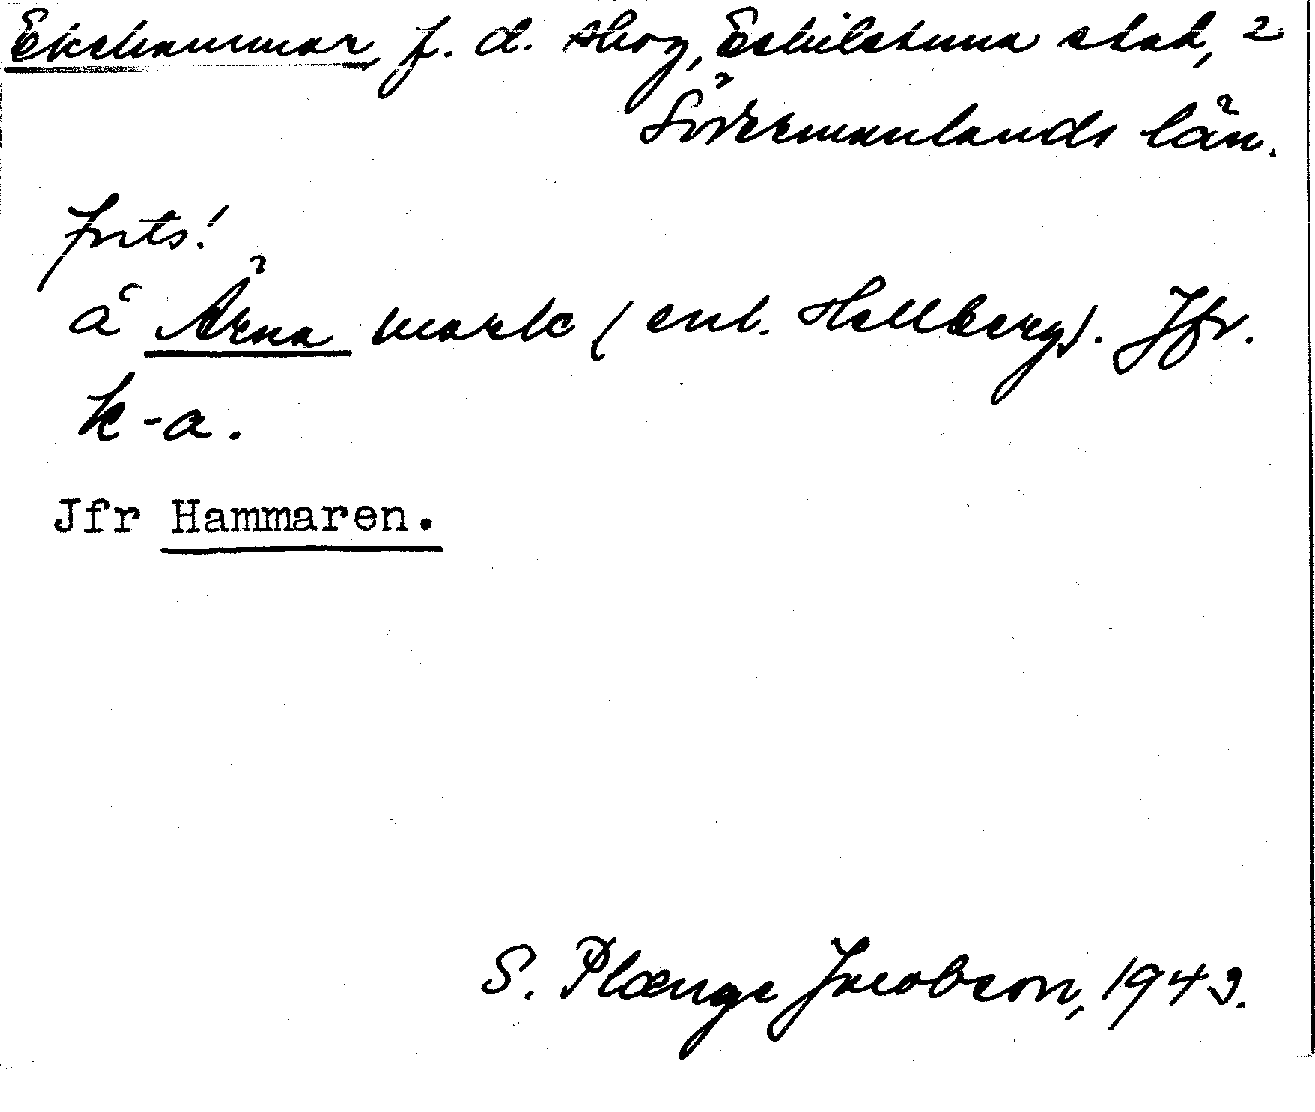 Ekshammar, f. d. skog, Eskilstuna stad, 2
Södermanlands län.
forts!
å Ärna mark (enl. Hellberg). Jfr.
k-a.
Jfr Hammaren.
S. Plænge Jacobson, 1943.